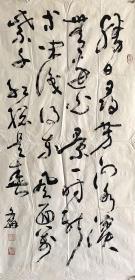 勝日尋芳泗水濱
無邊光景一時新
等閒識得東風面萬
紫千紅總是春